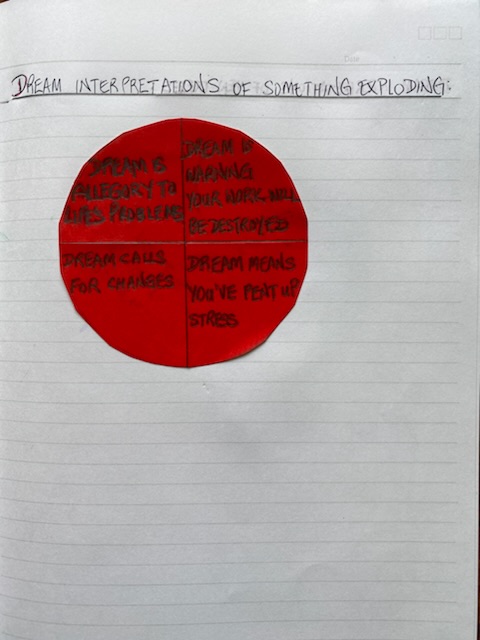 Date
DREAM INTERPRETATIONS OF SOMETHING EXPLODING:
DREAM IS
ALLEGORY TO
LIVES PROBLEMS
DREAM IS
WARNING
YOUR WORK WILL
BE DESTROYED
DREAM CALLS
FOR CHANGES
DREAM MEANS
YOU'VE PENT UP
STRESS